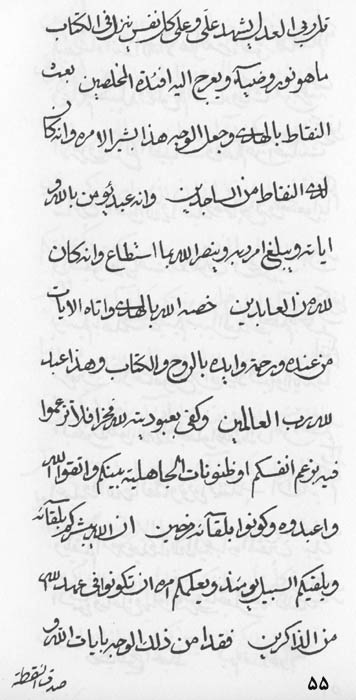 العدل يشهد علي وعلى كل نفس ينزل في الكتاب
ما هو نور وضياء ويعرج اليه افئدة المخلصين بعث
النقاط بالهدى وجعل الوجه هذا بشر الامره وانه كان
لدى النقاط من الساجدين وانه عبد يؤمن بالله و
اياته ويبلغ امر ربه وينصر الله بما استطاع وانه كان
لله من العابدين خصه الله بالهدى واتاه الايات
من عنده ورحمة وايده بالروح والكتاب وهذا عبد
لله رب العالمين وكفى بعبوديته لله فخرا فلا تزعموا
فيه بزعم انفسكم او ظنونات الجاهلية بينكم واتقوا الله
واعبدوه وكونوا بلقائه فرحين ان الله يبشركم بلقائه
ويلقيكم السبيل يومئذ ويعلمكم امره ان تكونوا في عهد الله
من الذاكرين فقد امن ذلك الوجه بايات الله و
صدق النقطة
٥٥